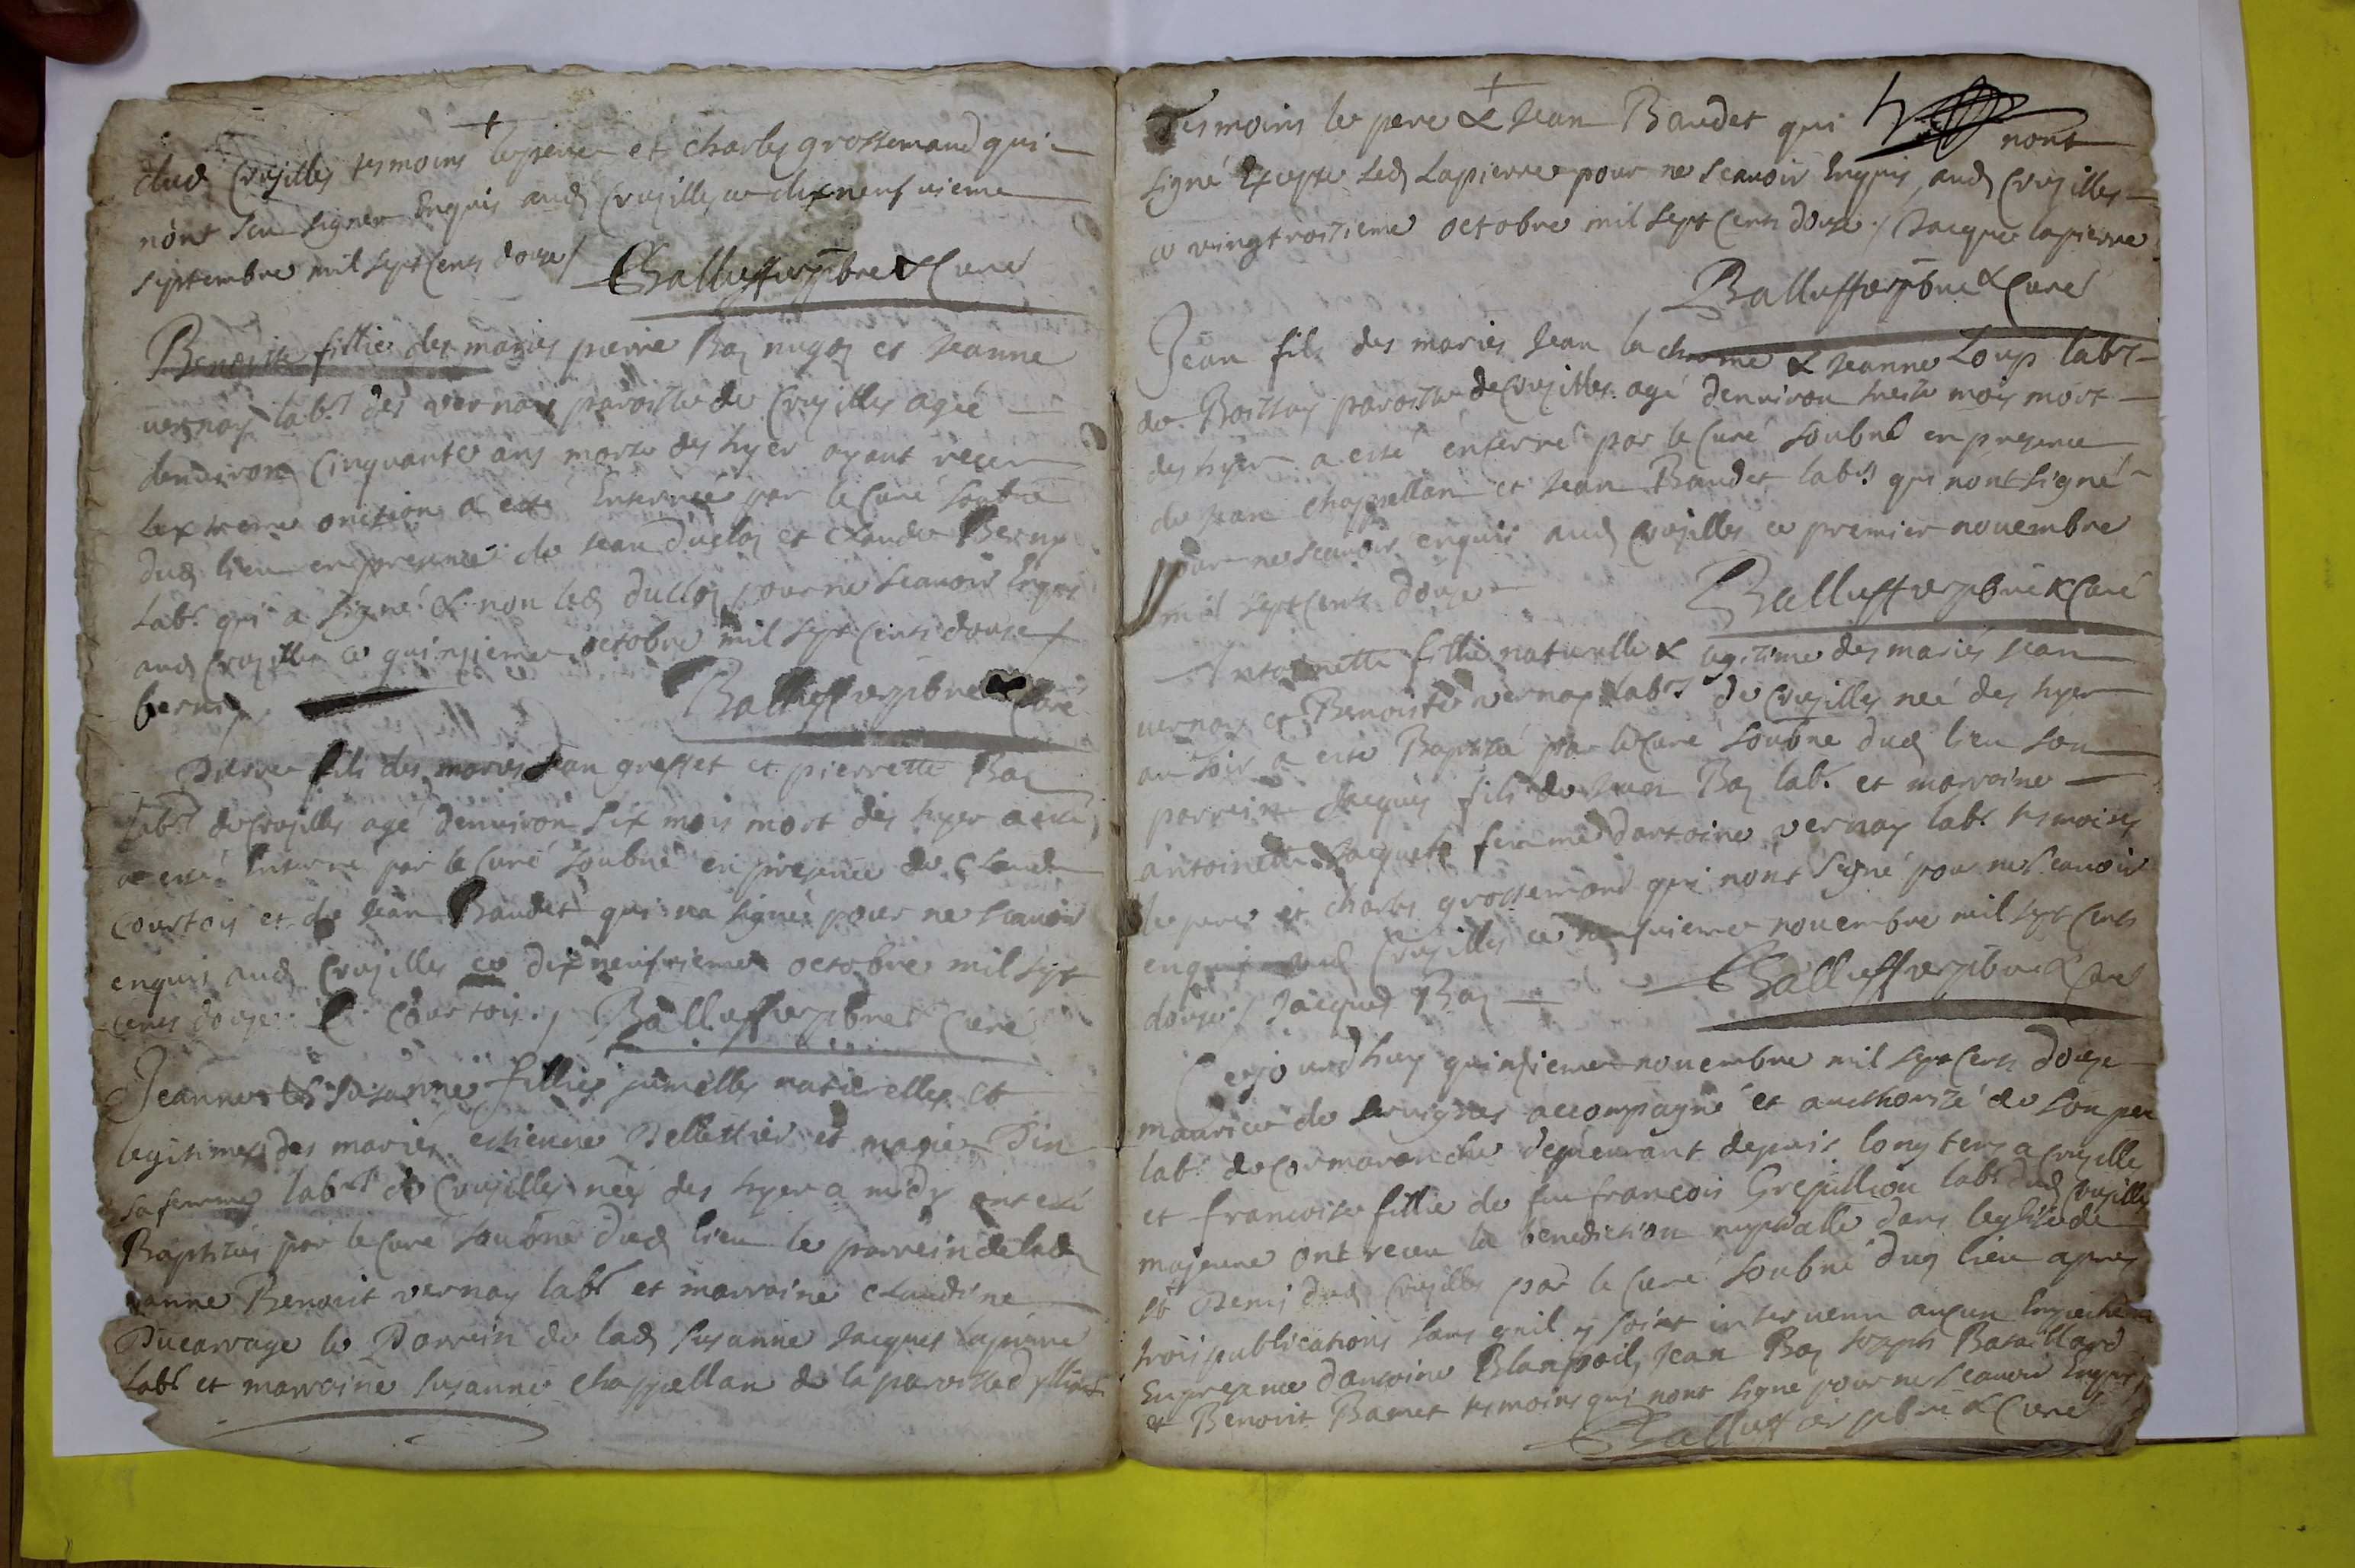 +
dud Crusilles tesmoins le pere et charles grossemand qui
nont sceu signer Enquis aud Crusilles ce dixneufvieme
septembre mil sept cents douze / Balluffier pbre & Curé
Benoiste fillie des mariés pierre Bas nugoz et Jeanne
vernay labrs des vernay paroisse de Crusilles agée
denviron Cinquante ans morte des hyer ayant receu
lextreme onction a esté Enterrée par le Curé soubné
dud lieu en presence de Jean duclos et Claude Berny
labr qui a signé & non led duclos pour ne scavoir Enquis
aud Crusilles ce quinzieme octobre mil sept cents douze /
berni Balluffier pbre & Curé
Pierre fils des mariés Jean greffet et pierrette Bas
labrs de Crusilles agé denviron six mois mort des hyer a esté
a esté Enterré par le Curé soubné en presence de Claude
Courtois et de Jean Baudet qui na signé pour ne scavoir
enquis aud Crusilles ce dixneufvieme octobre mil sept
cents douze C Courtois / Balluffier pbre & Curé
Jeanne & Susanne fillies jumelles naturelles et
legitimes des mariés estienne Pellettier et marie Pin
sa femme labrs de Crusilles nées des hyer a midy ont esté
Baptisées par le Curé soubné dud lieu le parrein de lad
Janne Benoit vernay labr et marraine Claudine
Ducarrage le Parrein de lad Susanne Jacques lapierre
labr et marraine Susanne Chappellan de la paroisse d
+
Tesmoins le pere & Jean Baudet qui nont
signé Excepté led Lapierre pour ne scavoir Enquis aud Crusilles
ce vingtroisieme octobre mil sept cents douze / Jacque lapierre
Balluffier pbre & Curé
Jean fils des mariés Jean la chaome & Jeanne Loup labrs
de Boissay paroisse de Crusilles agé denviron treise mois mort
des hyer a esté enterré par le Curé soubné en presence
de Jean Chappellan et Jean Baudet labrs qui nont signé
pour ne scavoir enquis aud Crusilles ce premier novembre
mil sept cents douze Balluffier pbre & Curé
Antoinette fillie naturelle & legitime des mariés Jean
vernay et Benoiste vernay labrs de Crusilles née des hyer
au soir a esté Baptisée par le Curé soubné dud lieu son
parrein Jacques fils de Jean Bas labr et marraine
antoinette Jacquet femme dantoine vernay labr tesmoins
le pere et charles grossemand qui nont signé pour ne scavoir
enquis aud Crusilles ce neufvieme novembre mil sept cents
douze / Jacques Bas Balluffier pbre & Curé
Cejourdhuy quinzieme novembre mil sept cents douze
maurice de accompagné et aucthorisé de son pere
labr de Cormaranche demeurant depuis longtems a Crusilles
et francoise fillie de feu francois Grepillion labr dud Crusilles
majeure ont receu la benediction nuptialle dans leglise de
st Denis dud Crusilles par le Curé soubné dud lieu apres
trois publications sans quil y soint intervenu aucun Empechemt
En presence dantoine Blanpoil, Jean Bas Joseph Bataillard
et Benoit Bamet tesmoins qui nont signé pour ne scavoir Enquis
Balluffier pbre & Curé